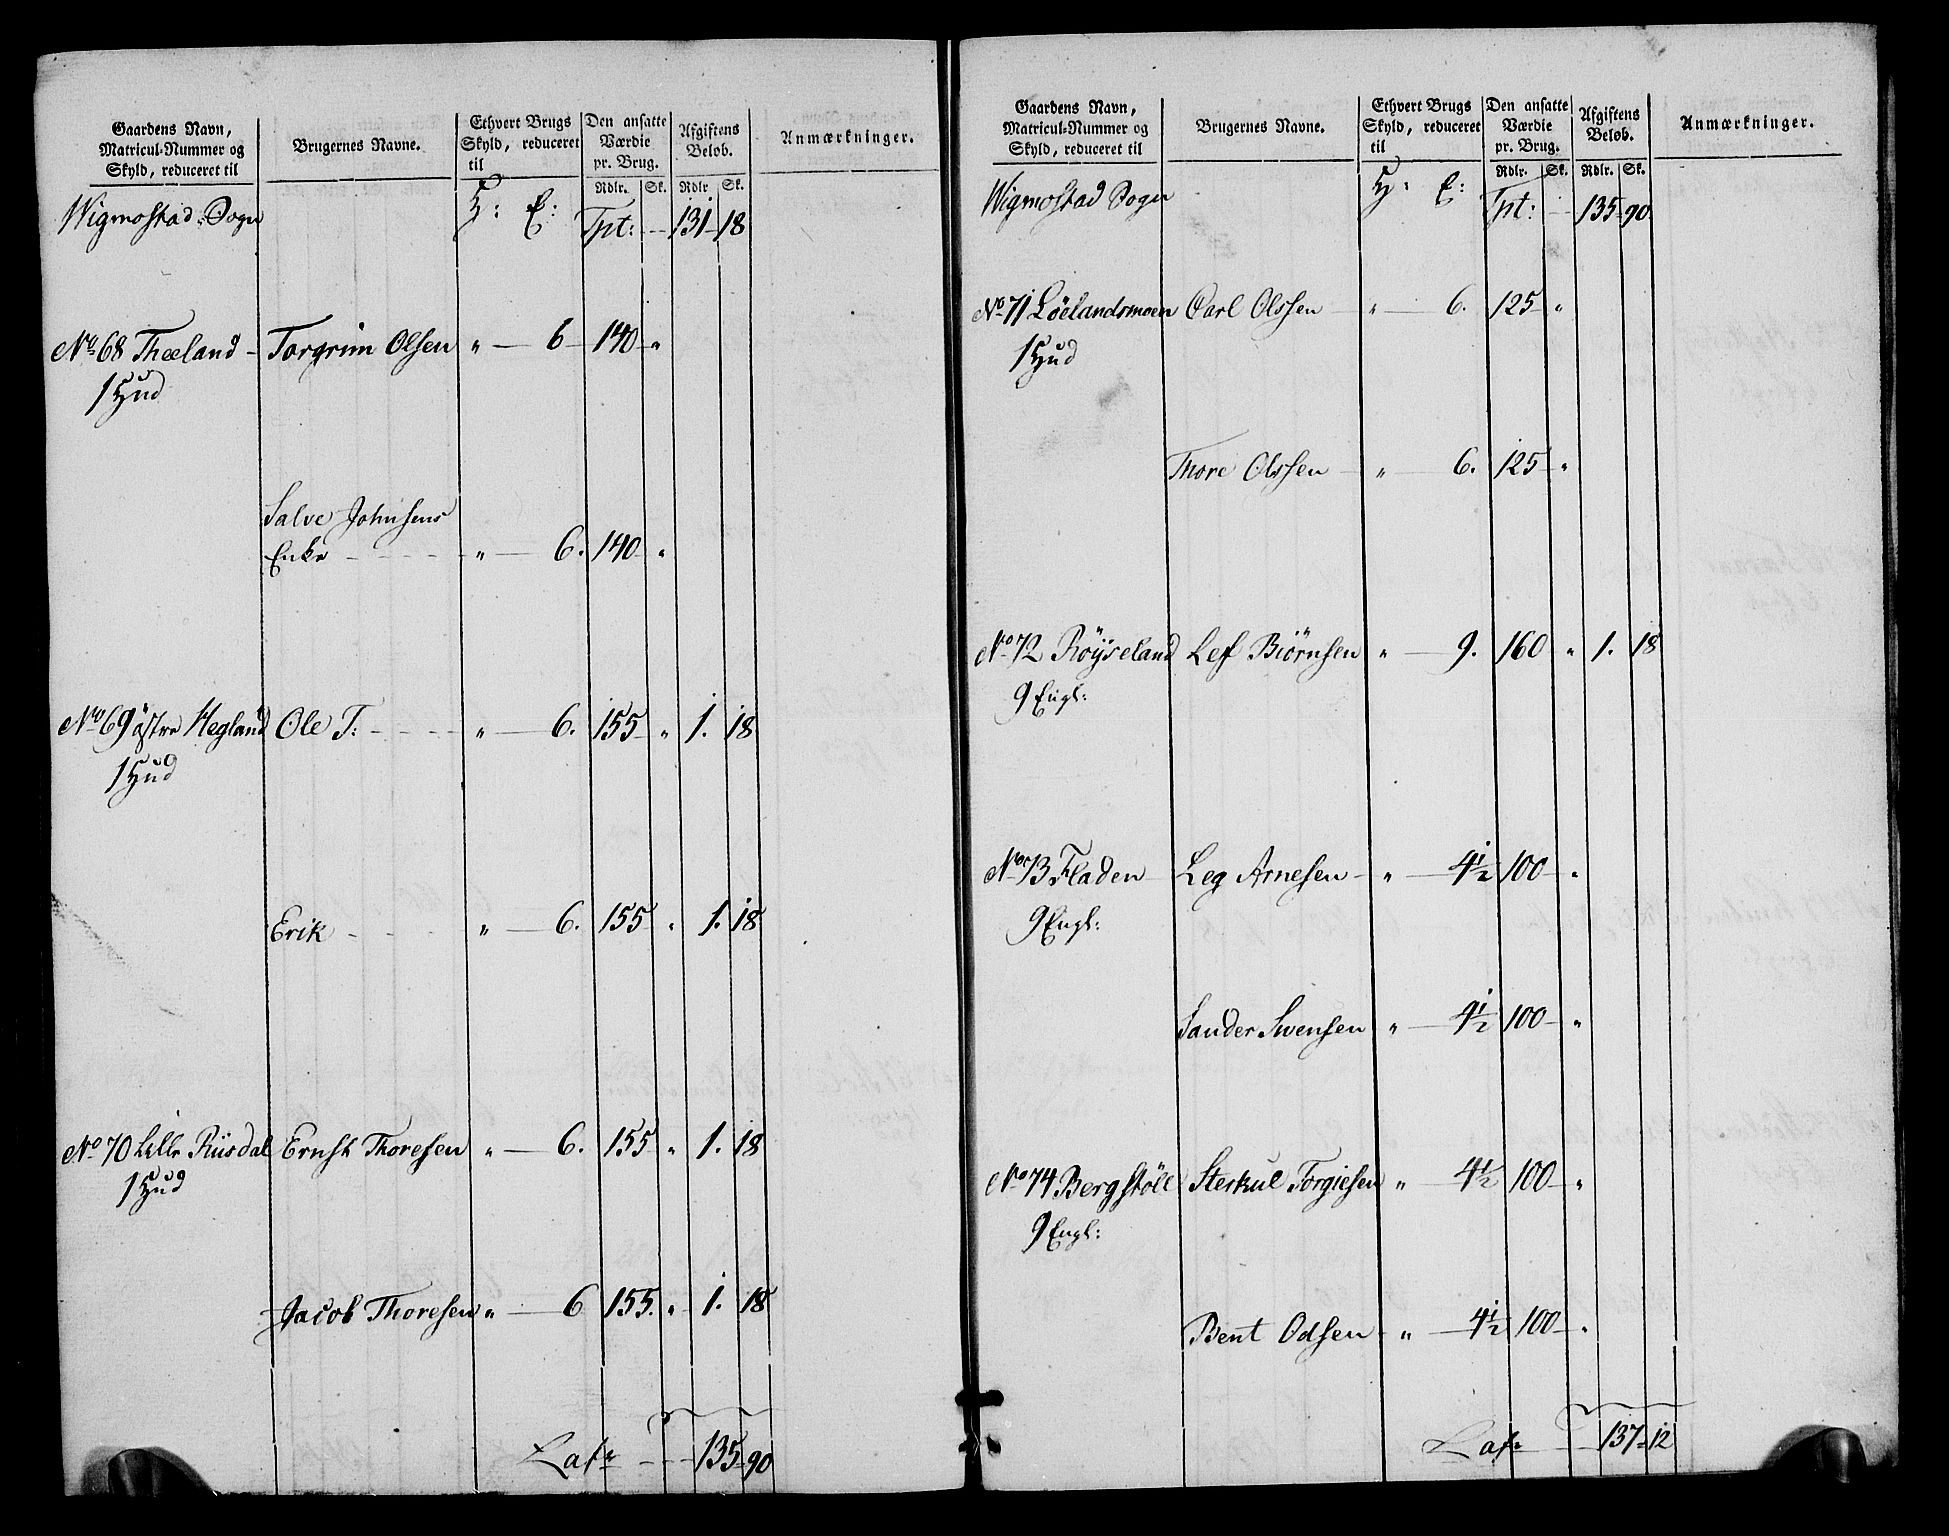 Gaardens Navn, Matricul-Nummer og Skyld, reduceret til | Brugernes Navne. | Ethvert Brugs Skyld, reduceret til | Den ansatte Værdie pr. Brug. | Afgiftens Beløb. | Anmærkninger.
Rdlr. Sk. Rdlr. Sk.
Wigmostad Sogn H: E: Tpt: 131 18
No 68 Theeland Torgrim Olsen " 6 140 "
1 Hud
Salve Johnsens
Enke " 6. 140 "
No 69 östre Hegland Ole T: " 6. 155 " 1. 18
1 Hud
Erik " 6. 155 " 1. 18
No 70 Lille Riisdal Ernst Thoresen " 6. 155 " 1. 18
1 Hud
Jacob Thoresen " 6 155. " 1. 18
Lat. 135 90
Gaardens Navn, Matricul-Nummer og Skyld, reduceret til | Brugernes Navne. | Ethvert Brugs Skyld, reduceret til | Den ansatte Værdie pr. Brug. | Afgiftens Beløb. | Anmærkninger.
Rdlr. Sk. Rdlr. Sk.
Wigmostad Sogn H: E: Tpt: 135 90
No 71 Löelandsmoen Carl Olssen " 6. 125 "
1 Hud
Thore Olssen " 6. 125 "
No 72 Röÿseland Lef Biörnsen " 9. 160 " 1. 18
9 Engl:
No 73 Fladen Leg Arnesen " 4 1/2 100 "
9 Engl:
Sander Swensen " 4 1/2 100 "
No 74 Bergstöll Sterkul Torgiesen " 4 1/2 100 "
9 Engl:
Bent Odsen " 4 1/2 100 "
Lat. 137 12